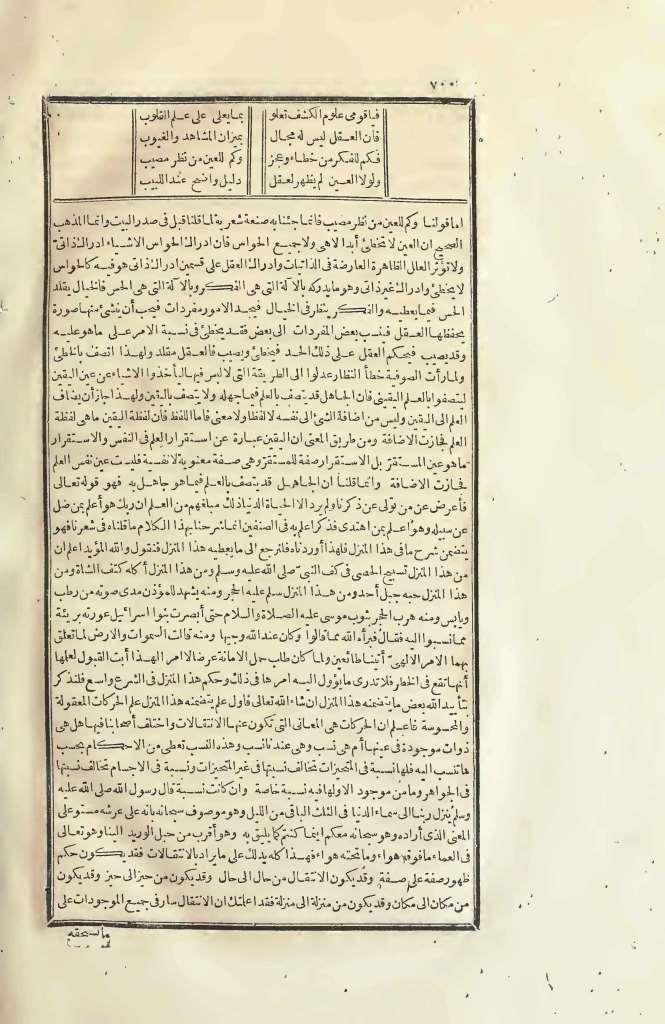 ٧٠٠
فياقومى علوم الكشف تعلو بما يعلى على علم القلوب
فان العقل ليس له مجال بميزان المشاهد والغيوب
فكم للفكر من خطاء وعجز وكم للعين من نظر مصيب
ولولا العين لم يظهر لعقل دليل واضح عند اللبيب
اما قولنا وكم للعين من نظر مصيب فانما جئنا به صنعة شعرية لما قلنا قبل فى صدر البيت وانما المذهب
الصحيح ان العين لا تخطئ أبدا لا هى ولا جميع الحواس فان ادراك الحواس الاشياء ادراك ذاتى
ولا تؤثر العلل الظاهرة العارضة فى الذاتيات وادراك العقل على قسمين ادراك ذاتى هو فيه كالحواس
لا يخطئ وادراك غير ذاتى وهو ما يدركه بالآلة التى هى الفكر وبالآلة التى هى الحس فالخيال يقلد
الحس فيما يعطيه والفكر ينظر فى الخيال فيجد الامور مفردات فيحب أن ينشئ منها صورة
يحفظها العقل فينسب بعض المفردات الى بعض فقد يخطئ فى نسبة الامر على ما هو عليه
وقد يصيب فيحكم العقل على ذلك الحد فيخطئ ويصيب فالعقل مقلد ولهذا اتصف بالخطئ
ولما رأت الصوفية خطأ النظار عدلوا الى الطريقة التى لا لبس فيها ليأخذوا الاشياء عن عين اليقين
ليتصفوا بالعلم اليقينى فان الجاهل قد يتصف بالعلم فيما جهله ولا يتصف باليقين ولهذا جاز أن يضاف
العلم الى اليقين وليس من اضافة الشئ الى نفسه لا لفظا ولا معنى فاما اللفظ فان لفظة اليقين ما هى لفظة
العلم فجازت الاضافة ومن طريق المعنى ان اليقين عبارة عن استقرار العلم فى النفس والاستقرار
ما هو عين المستقر بل الاستقرار صفة للمستقر وهى صفة معنوية لا نفسية فليست عين نفس العلم
فجازت الاضافة وانما قلنا ان الجاهل قد يتصف بالعلم فيما هو جاهل به فهو قوله تعالى
فأعرض عن من تولى عن ذكرنا ولم يرد الا الحياة الدنيا ذلك مبلغهم من العلم ان ربك هو أعلم بمن ضل
عن سبيله وهو اعلم بمن اهتدى فذكر اعلم به فى الصنفين انما شرحنا بهذا الكلام ما قلناه فى شعرنا فهو
يتضمن شرح ما فى هذا المنزل فلهذا أوردناه فلنرجع الى ما يعطيه هذا المنزل فنقول والله المؤيد اعلم ان
من هذا المنزل تسبيح الحصى فى كف النبى صلى الله عليه وسلم ومن هذا المنزل أكله كتف الشاة ومن
هذا المنزل حبه جبل أحد ومن هذا المنزل سلم عليه الحجر ومنه يشهد للمؤذن مدى صوته من رطب
ويابس ومنه هرب الحجر بثوب موسى عليه الصلاة والسلام حتى أبصرت بنوا اسرائيل عورته بريئة
مما نسبوا اليه فقال فبرأه الله مما قالوا وكان عند الله وجيها ومنه قالت السموات والارض لما تعلق
بهما الامر الالهى أتينا طائعين ولما كان طلب حمل الامانة عرضا لا امر الهذا أبت القبول لعلمها
أنها تقع فى الخطر فلا تدرى ما يؤول اليه امرها فى ذلك وحكم هذا المنزل فى الشرع واسع فلنذكر
بتأييد الله بعض ما يتضمنه هذا المنزل ان شاء الله تعالى فاول علم يتضمنه هذا المنزل علم الحركات المعقولة
والمحسوسة فاعلم ان الحركات هى المعانى التى تكون عنها الانتقالات واختلف أصحابنا فيها هل هى
ذوات موجودة فى عينها أم هى نسب وهى عندنا نسب وهذه النسب تعطى من الاحكام بحسب
ما تنسب اليه فلها نسبة فى المتحيزات تخالف نسبتها فى غير المتحيزات ونسبة فى الاجسام تخالف نسبتها
فى الجواهر وما من موجود الا ولها فيه نسبة خاصة وان كانت نسبة قال رسول الله صلى الله عليه
وسلم ينزل ربنا الى سماء الدنيا فى الثلث الباقى من الليل وهو موصوف سبحانه بانه على عرشه مستو على
المعنى الذى أراده وهو سبحانه معكم اينما كنتم كما يليق به وهو أقرب من حبل الوريد الينا وهو تعالى
فى العماء ما فوقه هواء وما تحته هواء فهذا كله يدلك على ما يراد بالانتقالات فقد يكون حكم
ظهور صفة على صفة وقد يكون الانتقال من حال الى حال وقد يكون من حيز الى حيز وقد يكون
من مكان الى مكان وقد يكون من منزلة الى منزلة فقد اعلمتك ان الانتقال سار فى جميع الموجودات على
ما تستحقه